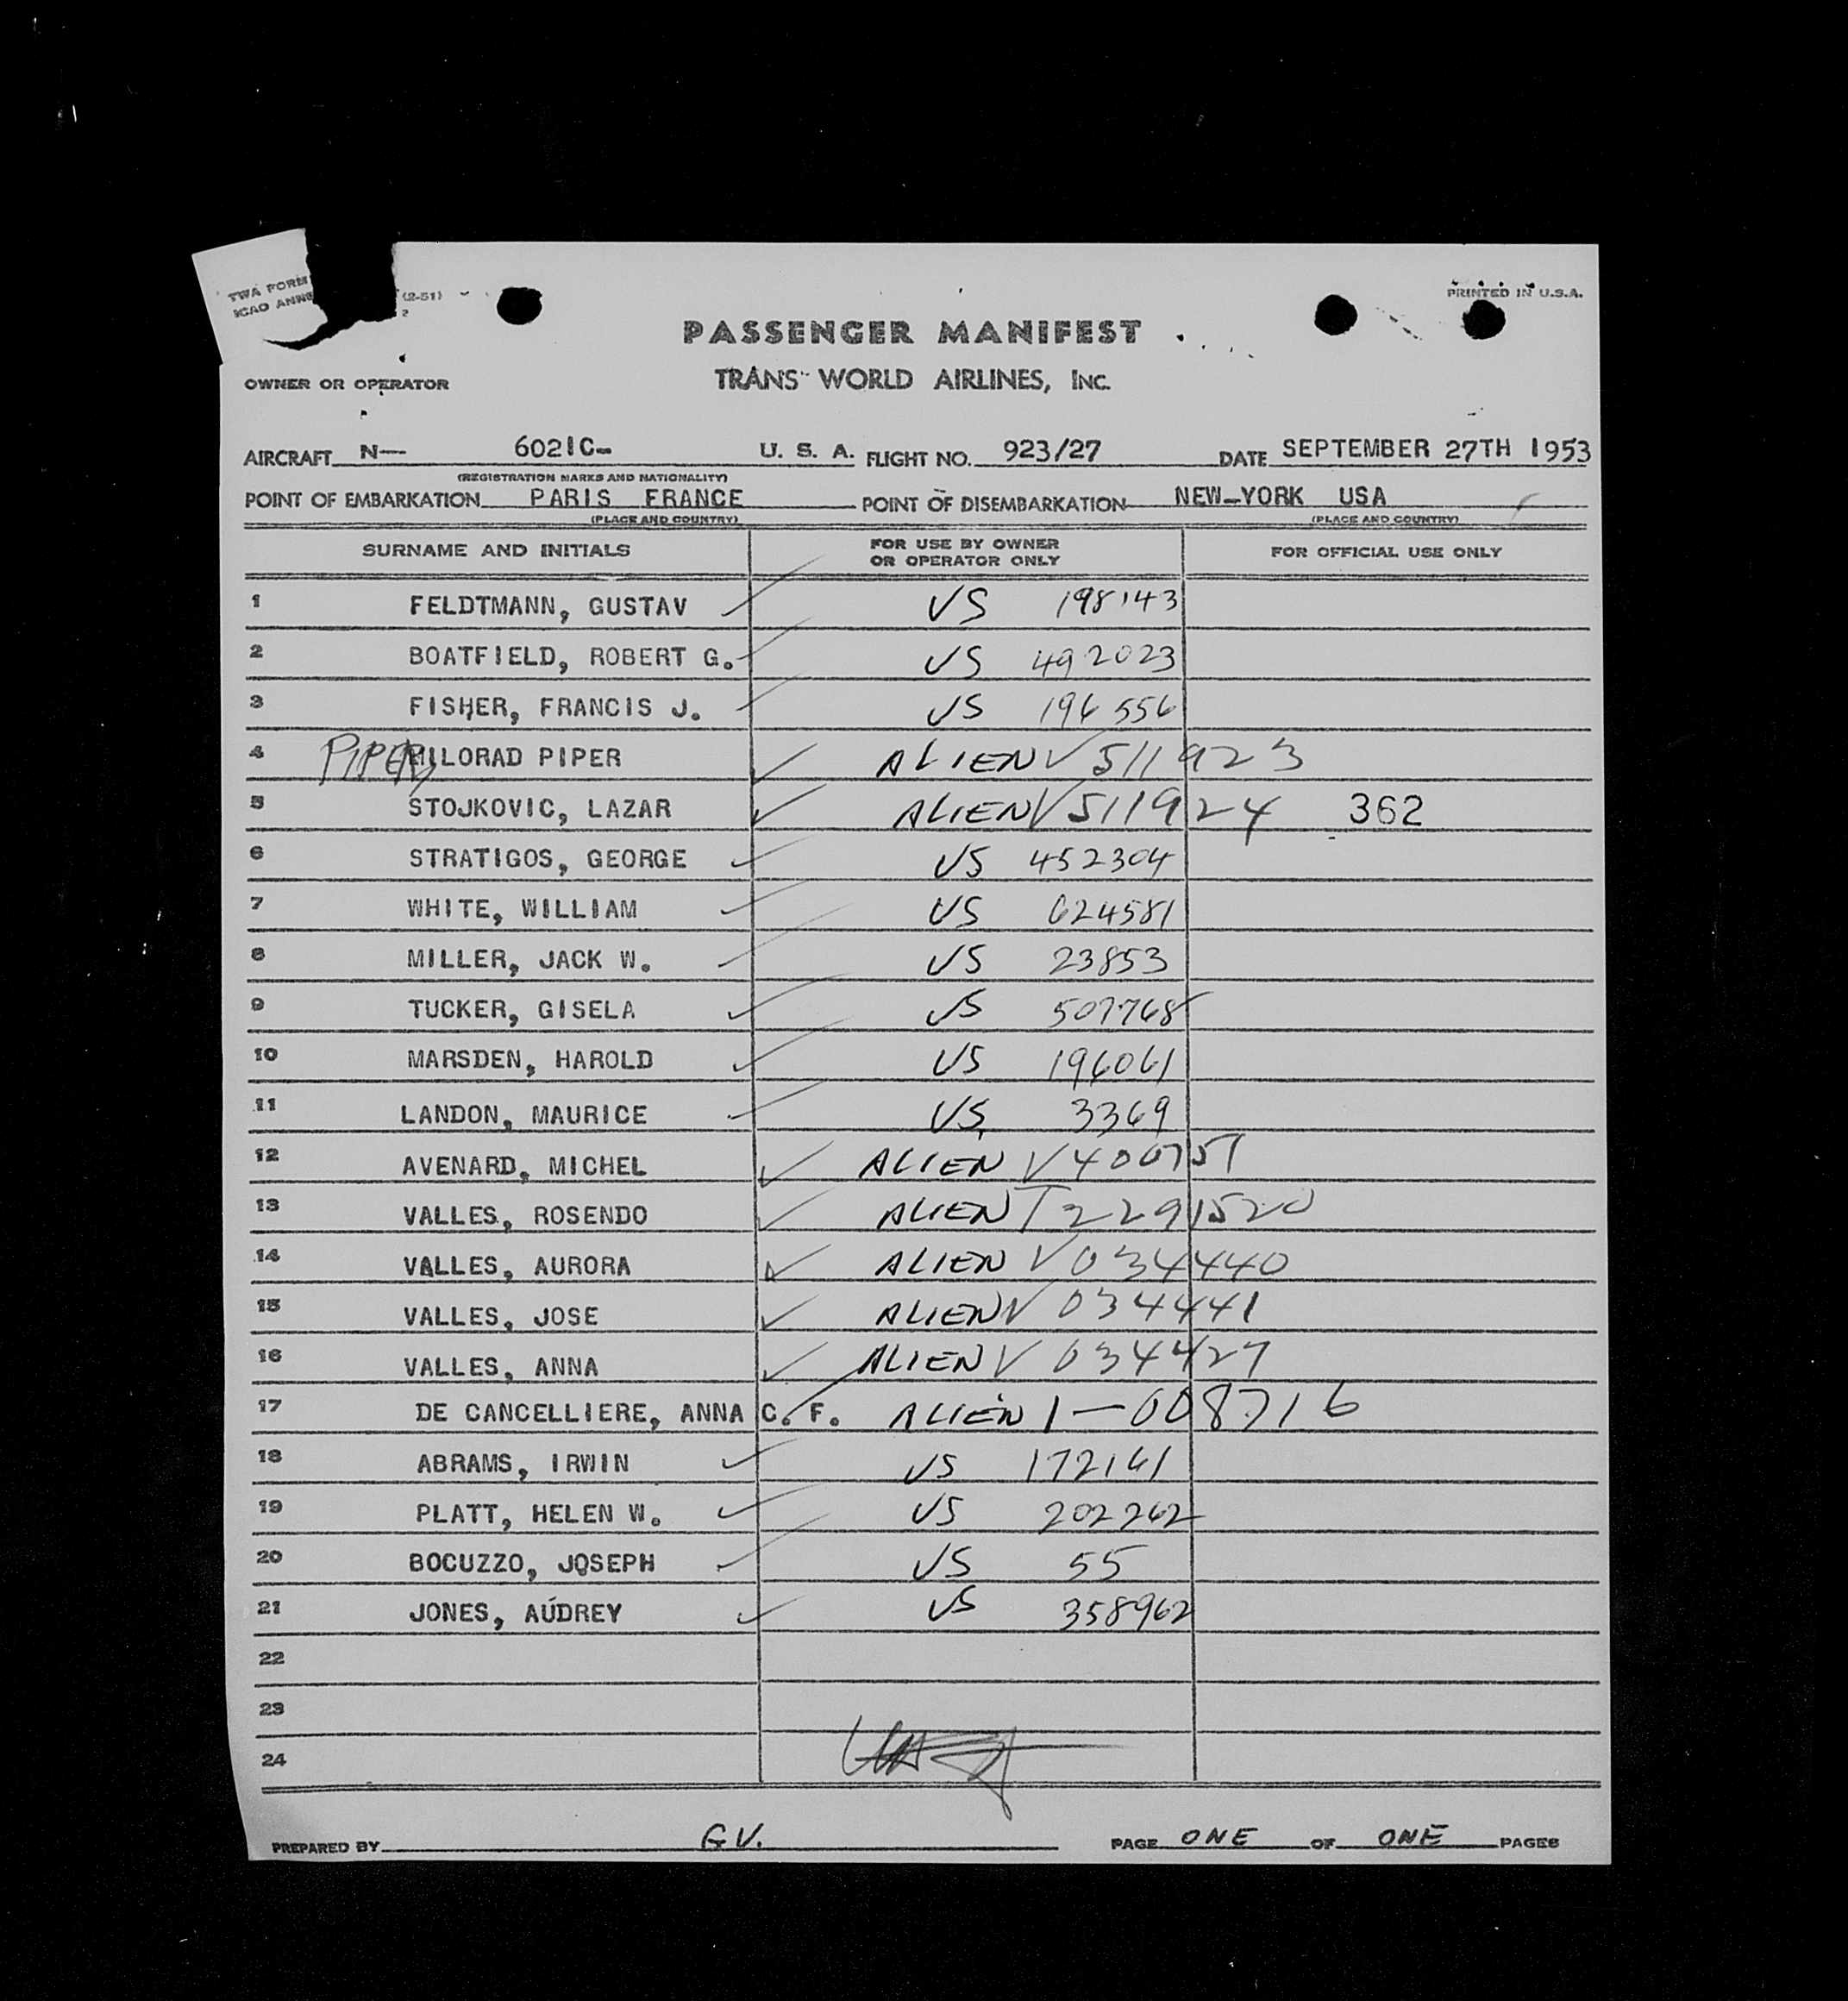 TWA FORM (2-51)
ICAO ANNE 2
PRINTED IN U.S.A.
PASSENGER MANIFEST
OWNER OR OPERATOR TRANS WORLD AIRLINES, INC.
AIRCRAFT N— 6021C- U. S. A. FLIGHT NO. 923/27 DATE SEPTEMBER 27TH 1953
(REGISTRATION MARKS AND NATIONALITY)
POINT OF EMBARKATION PARIS FRANCE POINT OF DISEMBARKATION NEW-YORK USA
(PLACE AND COUNTRY) (PLACE AND COUNTRY)
SURNAME AND INITIALS FOR USE BY OWNER OR OPERATOR ONLY FOR OFFICIAL USE ONLY
1 FELDTMANN, GUSTAV US 198143
2 BOATFIELD, ROBERT G. US 492023
3 FISHER, FRANCIS J. US 196556
4 PIPER, MILORAD PIPER ALIEN V 511923
5 STOJKOVIC, LAZAR ALIEN V 511924 362
6 STRATIGOS, GEORGE US 452304
7 WHITE, WILLIAM US 624581
8 MILLER, JACK W. US 23853
9 TUCKER, GISELA US 507768
10 MARSDEN, HAROLD US 196061
11 LANDON, MAURICE US 3369
12 AVENARD, MICHEL ALIEN V 400751
13 VALLES, ROSENDO ALIEN T 2291520
14 VALLES, AURORA ALIEN V 034440
15 VALLES, JOSE ALIEN V 034441
16 VALLES, ANNA ALIEN V 034427
17 DE CANCELLIERE, ANNA C. F. ALIEN 1-008716
18 ABRAMS, IRWIN US 172161
19 PLATT, HELEN W. US 202262
20 BOCUZZO, JOSEPH US 55
21 JONES, AUDREY US 358962
22
23
24
PREPARED BY G.V. PAGE ONE OF ONE PAGES